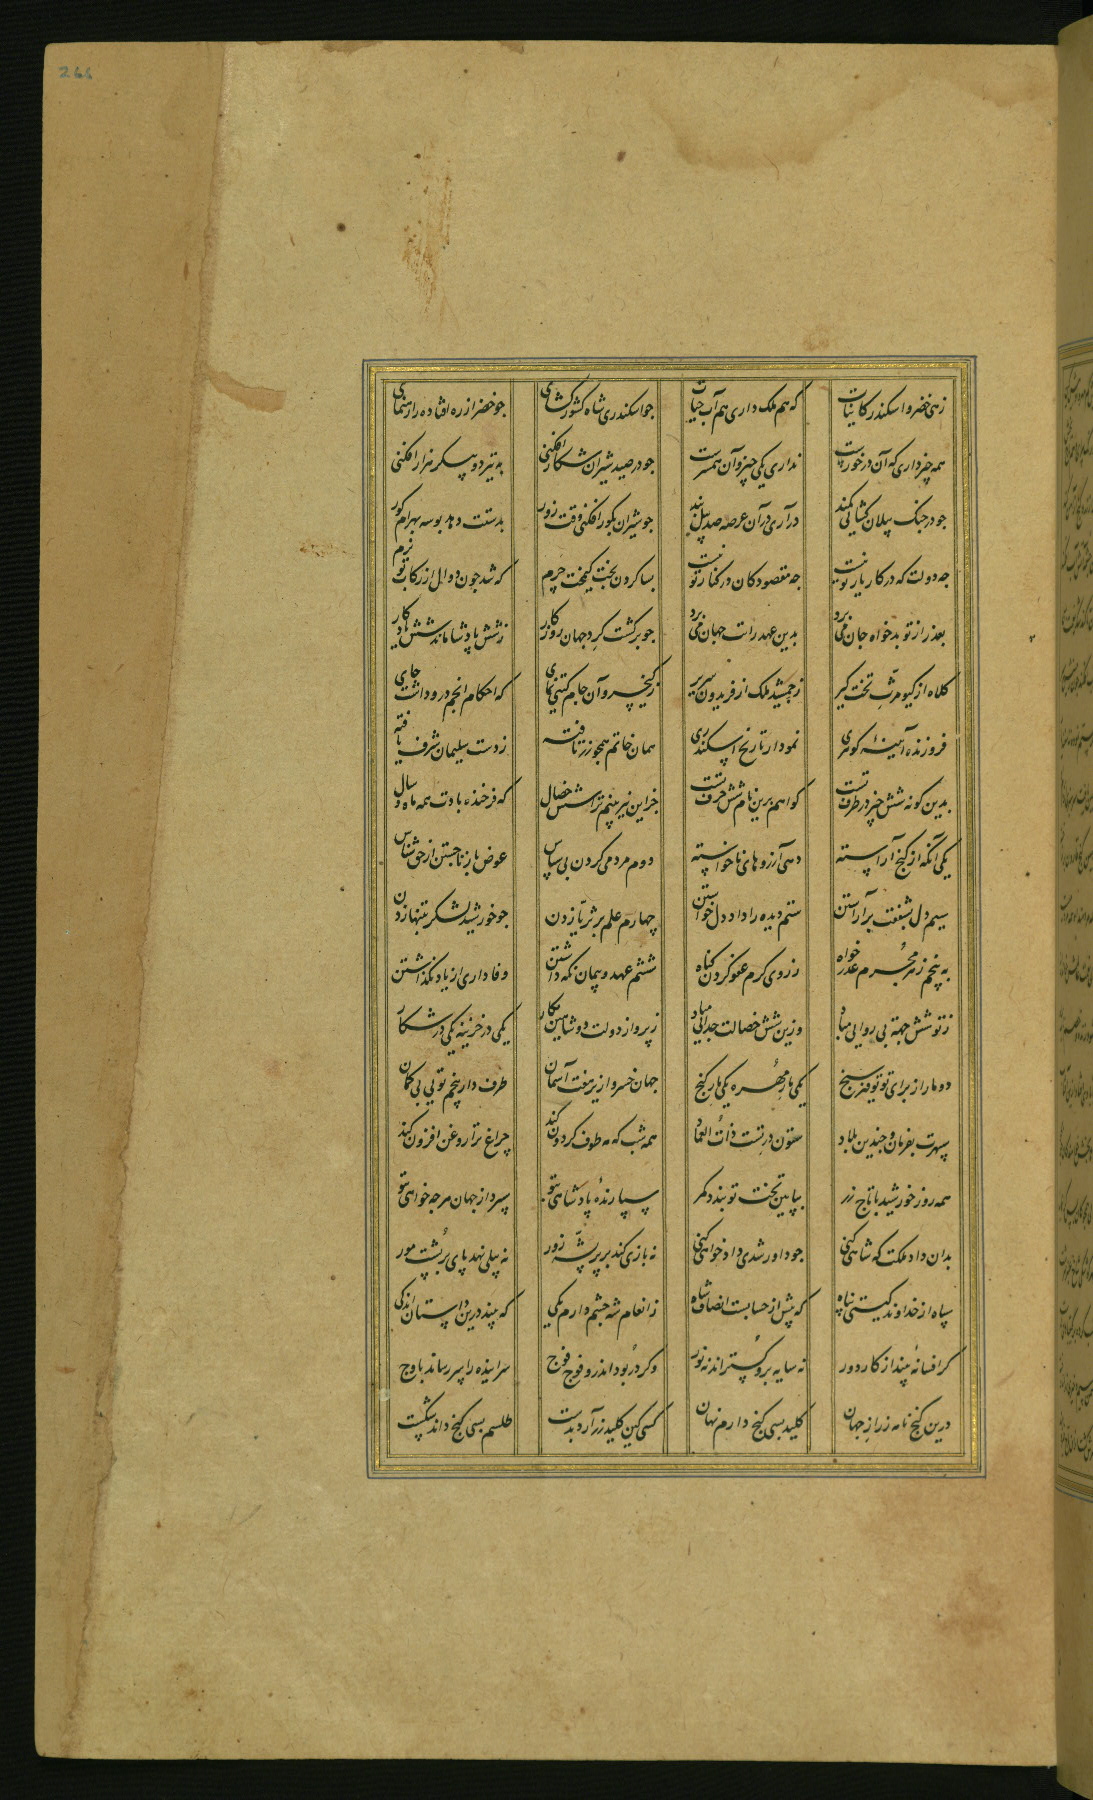 266
زهی خضر و اسکندر کاینات که هم ملک داری هم آب حیات جو اسکندری شاه کشورکشای جو خضر از ره افتاده را رهنمای
همه چیز داری که آن درخورست نداری یکی چیز و آن همسرست جو در صید شیران شکار افکنی به تیر دو پیکر هزار افکنی
جو در جنک پیلان کشایی کمند در آری در آن عرصه صد پیل بند جو شیران بکور افکنی وقت زور بدستت دهد بوسه بهرام کور
جه دولت که در کار یار تو نیست جه مقصود کان در کنار تو نیست بسا کردن سخت کیمخت جرم که شد جون دوال از رکاب تو نرم
بعذر از تو بدخواه جان می برد بدین عهد رات جهان می برد جو برکشت کرد جهان روزکار زشش پادشا ماند شش یادکار
کلاه از کیومرث تخت کیر ز جمشید ملک از فریدون سریر ز کیخسرو آن جام کیتی نمای که احکام انجم درو داشت جای
فروزنده آیینهٔ کوهری نمودار تاریخ اسکندری همان خاتم همجو زر تافته ز دست سلیمان شرف یافته
بدین کونه شش چیز در طرف تست کوا هم برین نام شش حرف تست جز این نیز بینم ترا شش خصال که فرخنده بادت همه ماه و سال
یکی آنکه از کنج آراسته دهی آرزوهای ناخواسته دوم مردمی کردن بی سپاس عوض باز ناجستن از حق شناس
سیم دل بشفقت برآراستن ستم دیده را داد دل خواستن چهارم علم بر ثریا زدن جو خورشید لشکر بتنها زدن
به پنجم ز مجرم عذر خواه ز روی کرم عفو کردن کناه ششم عهد و پیمان نکه داشتن وفاداری از یاد نکذاشتن
ز تو شش جهت بی روایی مباد وزین شش خصالت جدایی مباد ز پرواز دولت دو شاهین بکار یکی در خزینه یکی در شکار
دو مار از برای تو توفیر سنج یکی مار مهره یکی مار کنج جهان خسروا زیر هفت آسمان طرف دار پنجم تویی بی کمان
سپهرت بفرمان و جندین بلاد ستون درت ذات العماد همه شب که مه طوف کردون کند چراغ ترا روغن افزون کند
همه روز خورشید با تاج زر بپایین تخت تو بندد کمر سپارندهٔ پادشاهی بتو سپرد از جهان هرجه خواهی بتو
بدان داد ملکت که شاهی کنی جو داور شدی داد خواهی کنی نه بازی کند بر پر پشه زور نه پیلی نهد پای بر پشت مور
سپاه از خداوند کیتی پناه که بیش از حسابست انصاف شاه ز انعام شه جشم دارم یکی که بیند درین داستان اندکی
کر افسانهٔ بیند از کار دور نه سایه برو کستراند نه نور وکر در بود اندرو فوج فوج سراینده را سر رساند باوج
درین کنج نامه ز راز جهان کلید بسی کنج دارم نهان کسی کین کلید زر آرد بدست طلسم بسی کنج داند شکست